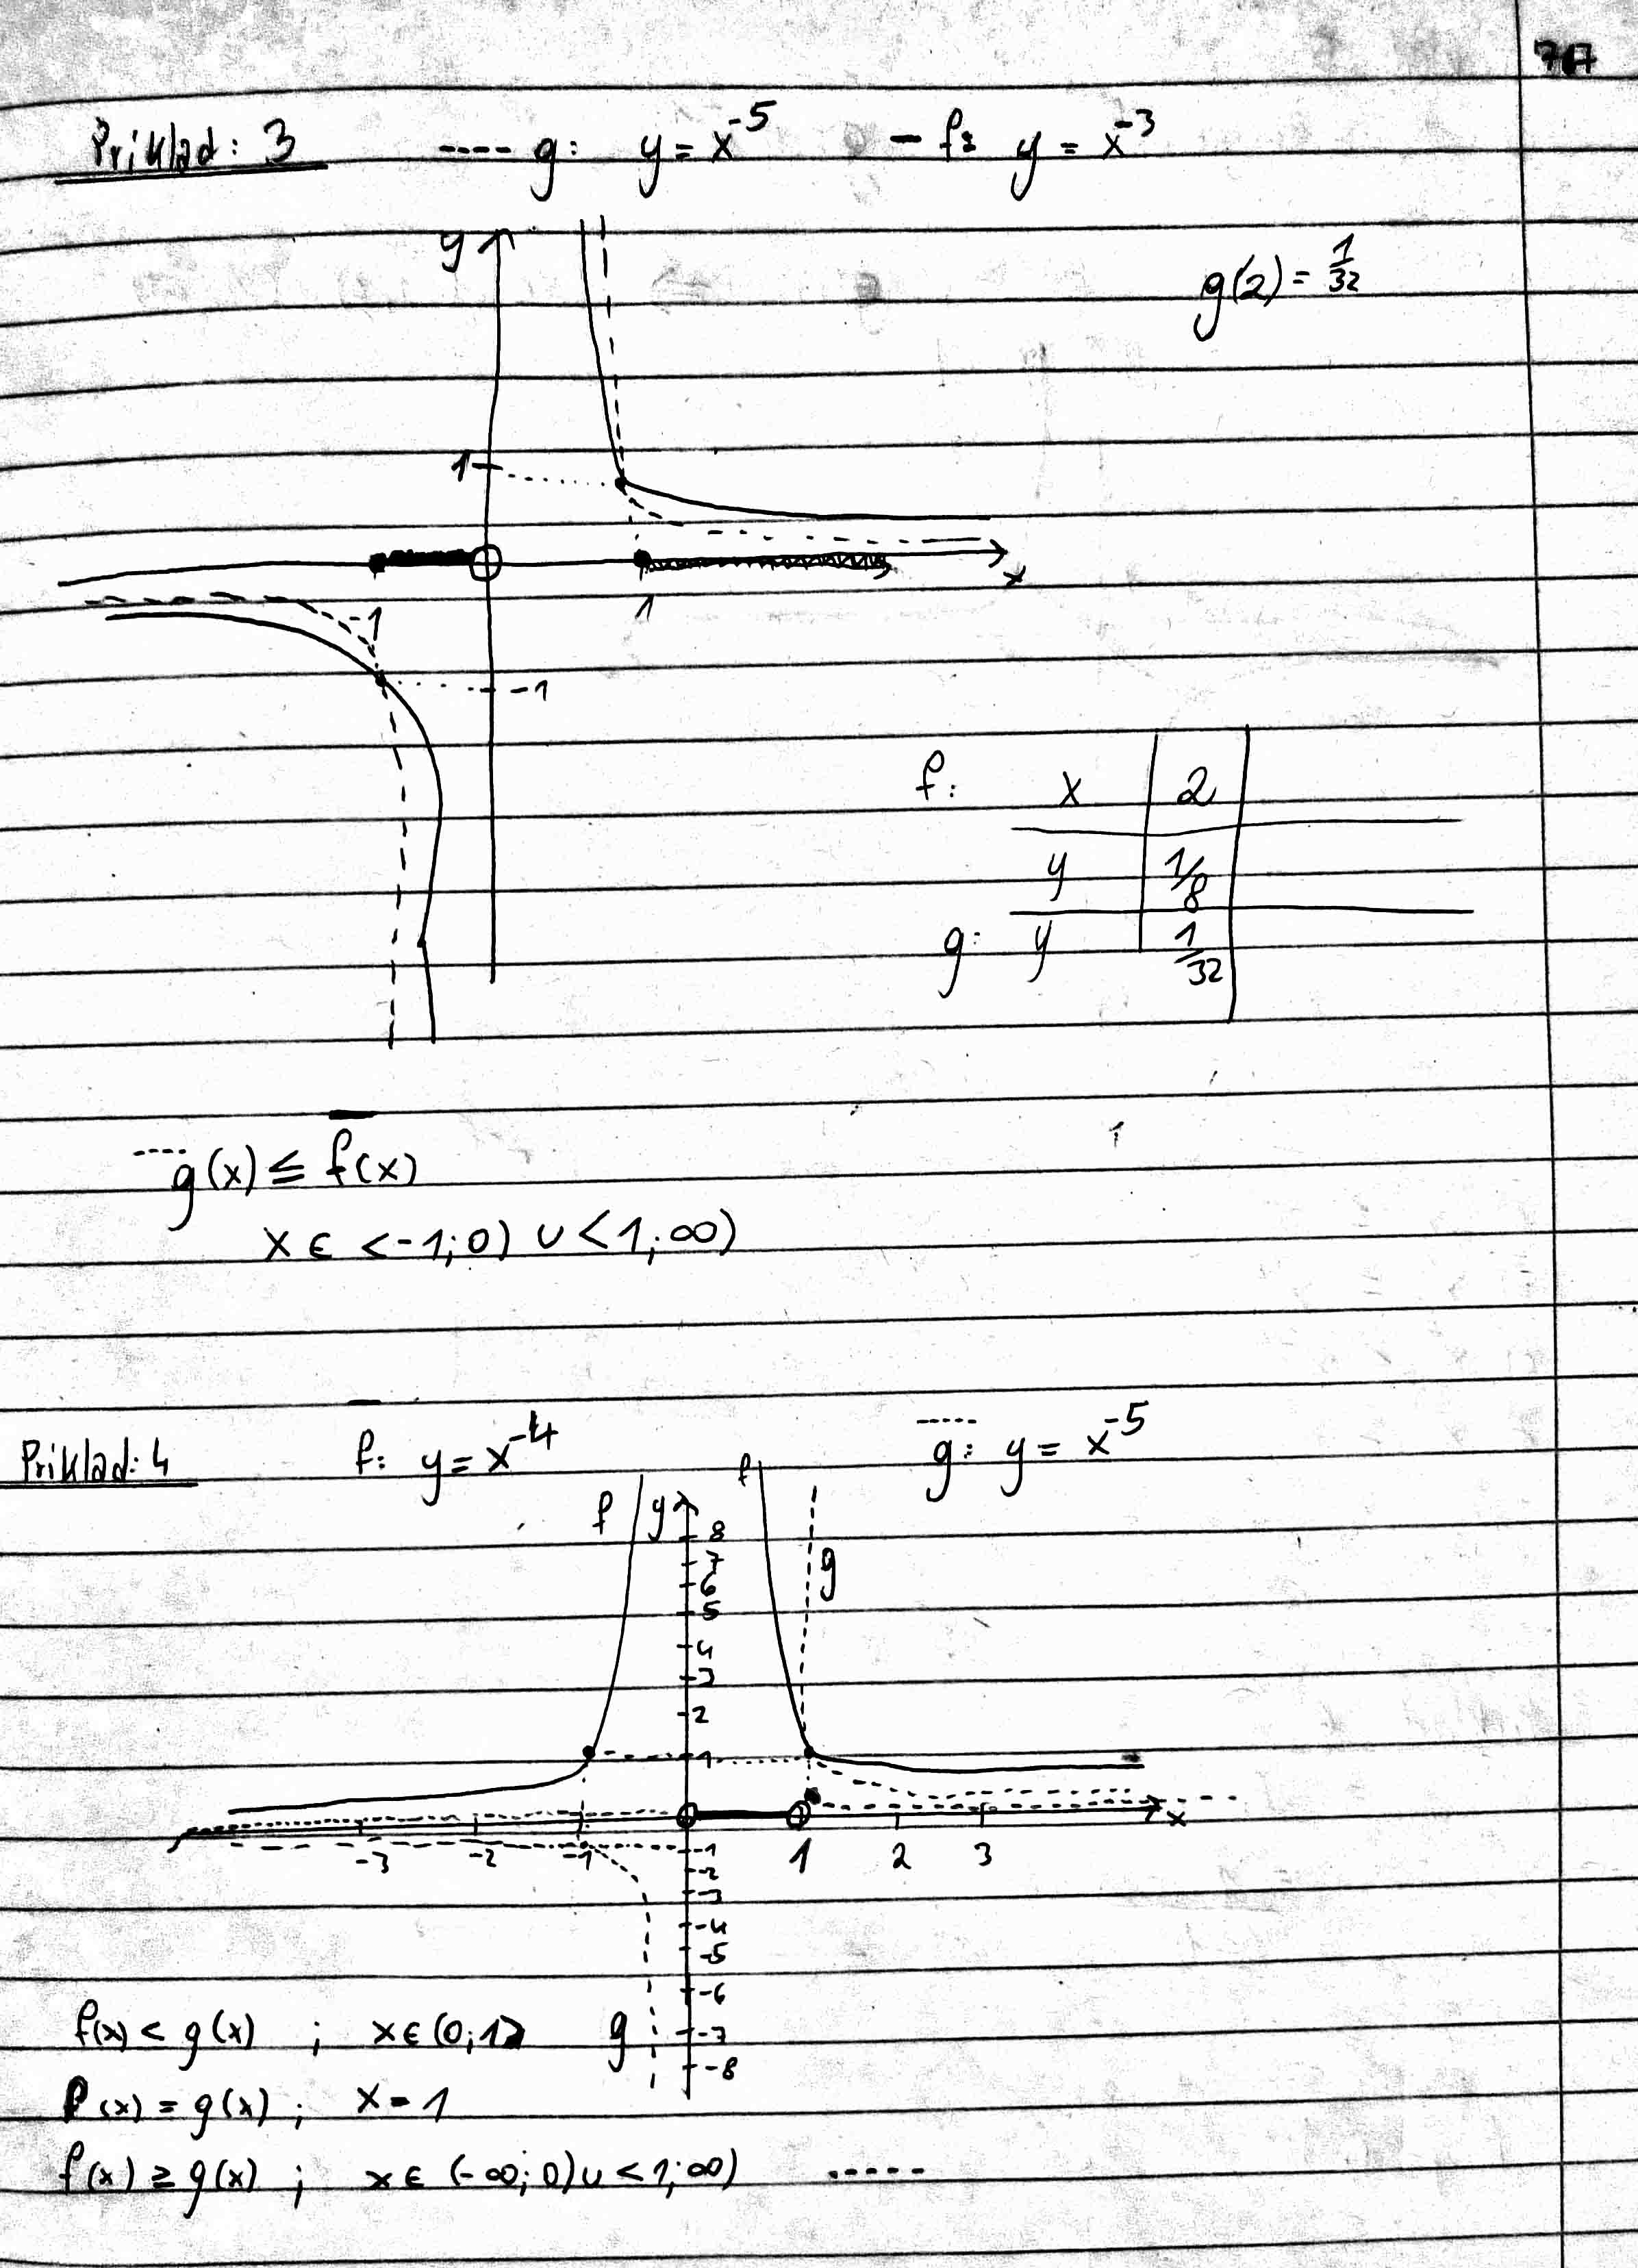 Priklad: 3 ---- g: y = x^-5 – f: y = x^-3
g(2) = 1/32
y
1
x
-1 1
-1
f: x 2
y 1/8
g: y 1/32
g(x) ≤ f(x)
x ∈ <-1;0) ∪ <1;∞)
Priklad: 4 f: y = x^-4 g: y = x^-5
f y f
8
g
7
6
5
4
3
2
1
x
-3 -2 -1 1 2 3
-1
-2
-3
-4
-5
-6
f(x) < g(x) ; x ∈ (0;1) g -7
-8
f(x) = g(x) ; x = 1
f(x) ≥ g(x) ; x ∈ (-∞;0) ∪ <1;∞) -----